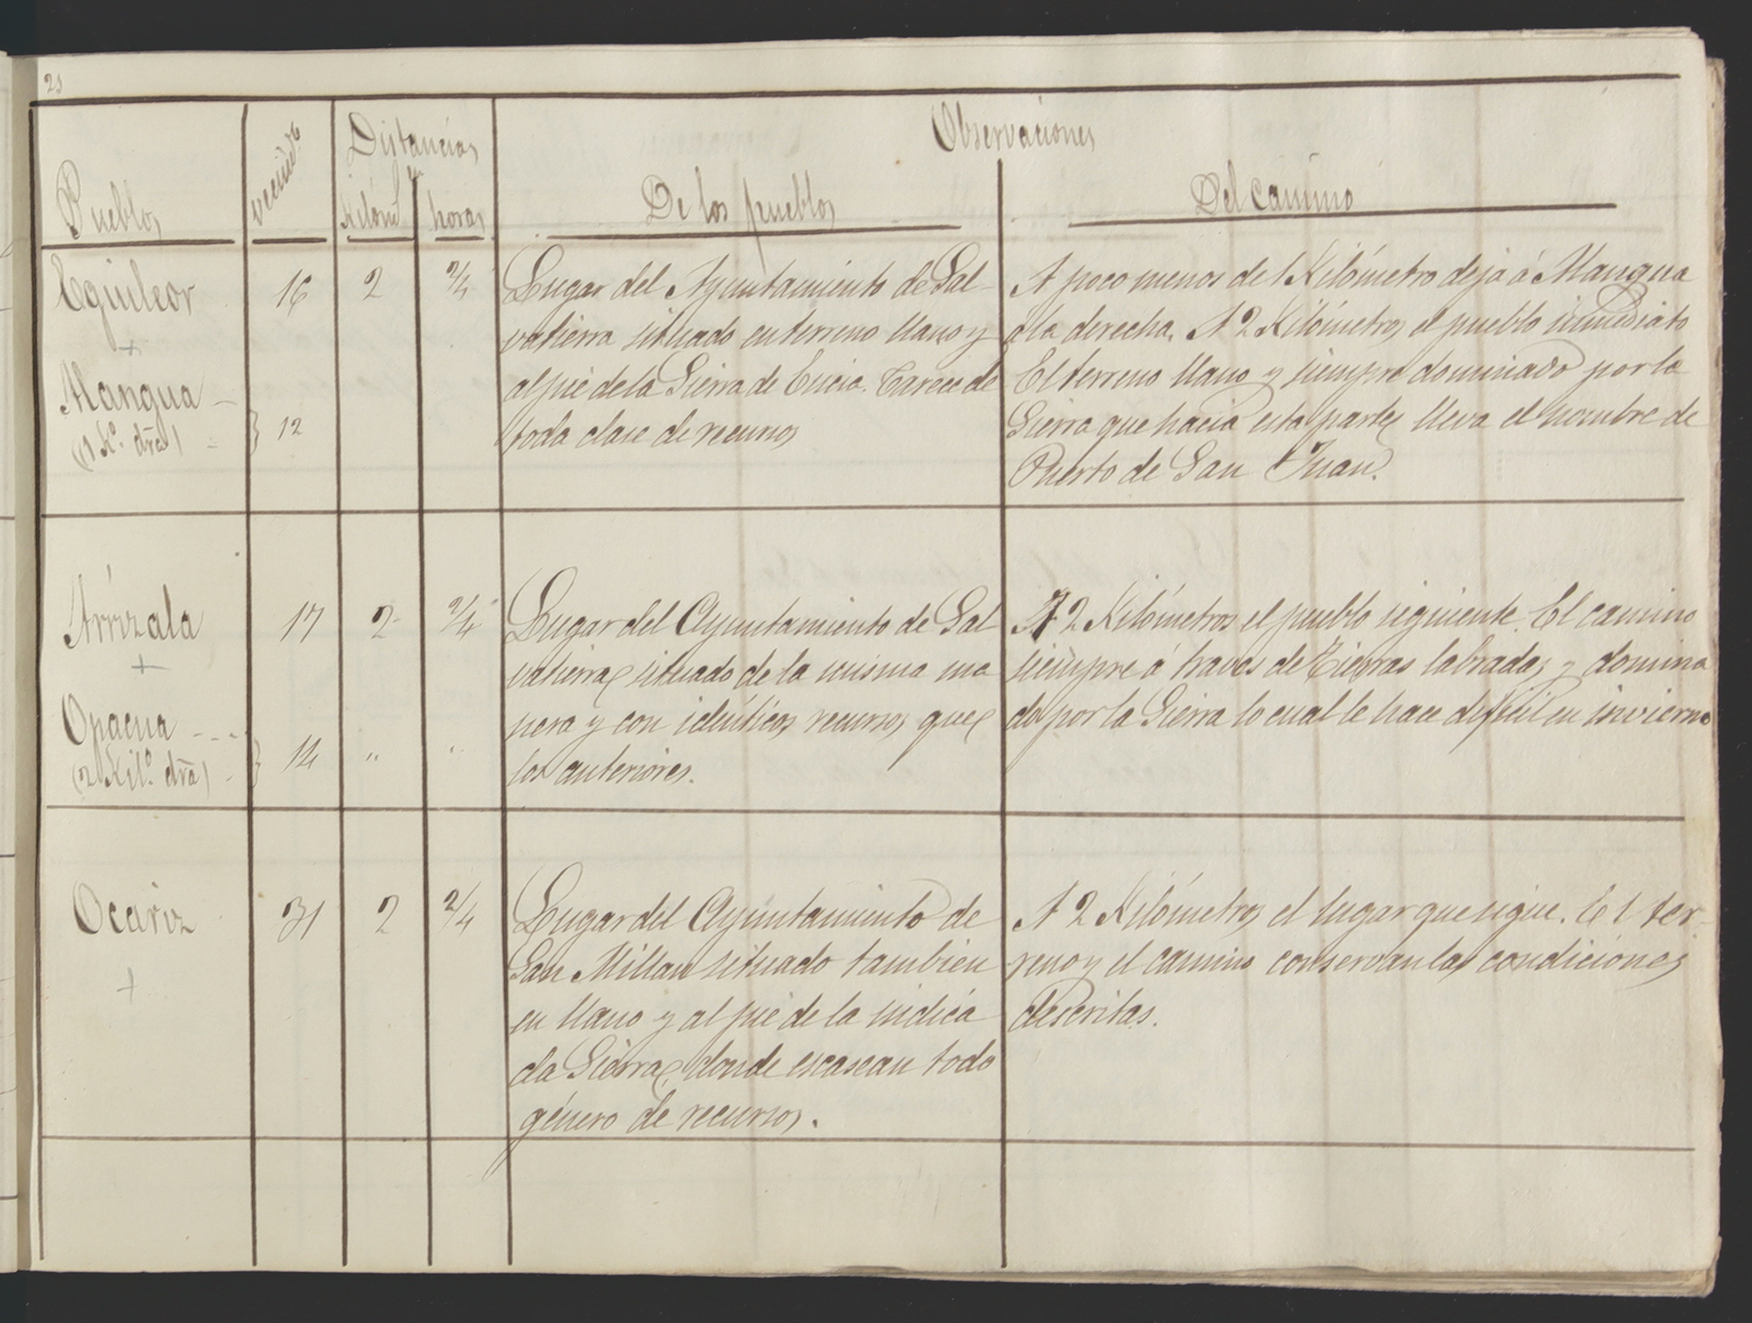 21
Pueblos
vecind.s
Distancias
Kilóm.s
y
horas
Observaciones
De los pueblos
Del camino
Eguileor
16
2
2/4
+
Mangua
(1 K.o dra)
12
Lugar del Ayuntamiento de Sal-
vatierra situado en terreno llano y
al pie de la Sierra de Encia. Carece de
toda clase de recursos
A poco menos de 1 Kilómetro deja á Mangua
a la derecha. A 2 Kilómetros el pueblo inmediato
El terreno llano y siempre dominado por la
Sierra que hacia esta parte lleva el nombre de
Puerto de San Juan.
Arrizala
17
2
2/4
+
Opacua
(2 Kil.o dra)
14
"
"
Lugar del Ayuntamiento de Sal
vatierra situado de la misma ma
nera y con idénticos recursos que
los anteriores.
A 2 Kilómetros el pueblo siguiente. El camino
siempre á traves de tierras labradas y domina
do por la Sierra lo cual le hace dificil en invierno
Ocariz
31
2
2/4
+
Lugar del Ayuntamiento de
San Millan situado tambien
en llano y al pie de la indica
da Sierra, donde escasean todo
género de recursos.
A 2 Kilómetros el lugar que sigue. El ter-
reno y el camino conservan las condiciones
descritas.